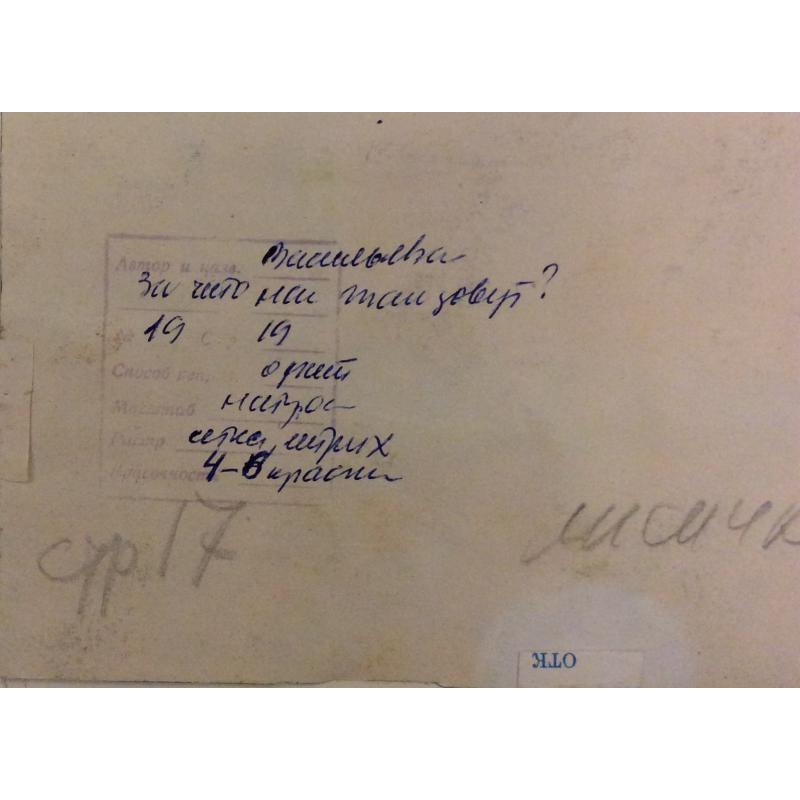 Автор и назв. Васильева
За что нас так зовут?
19 С. 19
Способ печ. офсет
Масштаб натур.
Растр сетка, штрих
Красочность 4-6 краски
стр 17
лисичк
ОТК